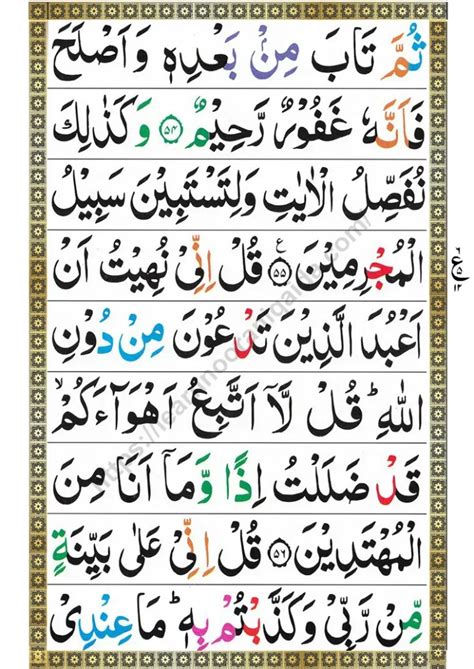 ثُمَّ تَابَ مِنْۢ بَعْدِهٖ وَاَصْلَحَ
فَاَنَّهٗ غَفُوْرٌ رَّحِيْمٌ ﴿۵۴﴾ وَكَذٰلِكَ
نُفَصِّلُ الْاٰيٰتِ وَلِتَسْتَبِيْنَ سَبِيْلُ
الْمُجْرِمِيْنَ ﴿۵۵﴾ ع قُلْ اِنِّىْ نُهِيْتُ اَنْ
ع
اَعْبُدَ الَّذِيْنَ تَدْعُوْنَ مِنْ دُوْنِ
اللّٰهِ ؕ قُلْ لَّاۤ اَتَّبِعُ اَهْوَآءَكُمْ ۙ
قَدْ ضَلَلْتُ اِذًا وَّمَاۤ اَنَا مِنَ
الْمُهْتَدِيْنَ ﴿۵۶﴾ قُلْ اِنِّىْ عَلٰى بَيِّنَةٍ
مِّنْ رَّبِّىْ وَكَذَّبْتُمْ بِهٖ ؕ مَا عِنْدِىْ